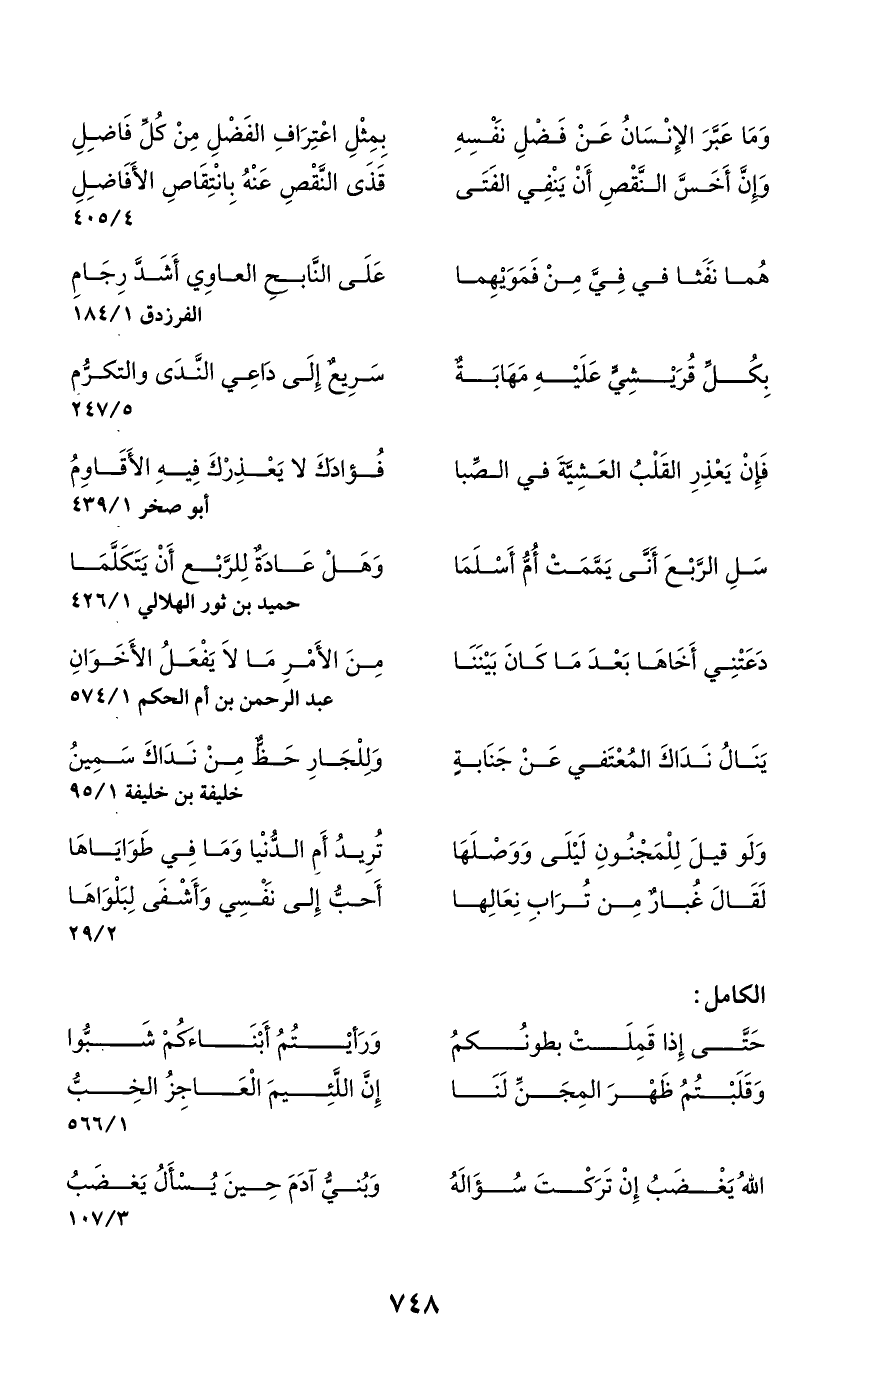 وَمَا عَبَّرَ الإِنْسَانُ عَنْ فَضْلِ نَفْسِهِ بِمِثْلِ اعْتِرَافِ الفَضْلِ مِنْ كُلِّ فَاضِلِ
وَإِنَّ أَخَسَّ النَّقْصِ أَنْ يَنْفِي الفَتَى قَذَى النَّقْصِ عَنْهُ بِانْتِقَاصِ الأَفَاضِلِ
٤٠٥/٤
هُما نَفَثَا في فِيَّ مِنْ فَمَوَيْهِما عَلَى النَّابِحِ العاوِي أَشَدَّ رِجَامِ
الفرزدق ١٨٤/١
بِكُلِّ قُرَيْشِيٍّ عَلَيْهِ مَهَابَةٌ سَرِيعٌ إِلَى دَاعِي النَّدَى والتكرُّمِ
٢٤٧/٥
فَإِنْ يَعْذِرِ القَلْبُ العَشِيَّةَ في الصِّبا فُؤادَكَ لا يَعْذِرْكَ فِيهِ الأَقَاوِمُ
أبو صخر ٤٣٩/١
سَلِ الرَّبْعَ أَنَّى يَمَّمَتْ أُمُّ أَسْلَمَا وَهَلْ عَادَةٌ لِلرَّبْعِ أَنْ يَتَكَلَّمَا
حميد بن ثور الهلالي ٤٢٦/١
دَعَتْنِي أَخَاهَا بَعْدَ مَا كَانَ بَيْنَنَا مِنَ الأَمْرِ مَا لاَ يَفْعَلُ الأَخَوَانِ
عبد الرحمن بن أم الحكم ٥٧٤/١
يَنَالُ نَدَاكَ المُعْتَفي عَنْ جَنَابَةٍ وَلِلْجَارِ حَظٌّ مِنْ نَدَاكَ سَمِينُ
خليفة بن خليفة ٩٥/١
وَلَو قيلَ لِلْمَجْنُونِ لَيْلَى وَوَصْلَهَا تُرِيدُ أَمِ الدُّنْيا وَمَا فِي طَوَايَاهَا
لَقَالَ غُبارٌ مِن تُرَابِ نِعَالِها أَحبُّ إِلى نَفْسِي وَأَشْفَى لِبَلْوَاهَا
٢٩/٢
الكامل :
حَتَّى إِذا قَمِلَتْ بطونُكمُ وَرَأَيْتُمُ أَبْنَاءَكُمْ شَبُّوا
وَقَلَبْتُمُ ظَهْرَ المِجَنِّ لَنَا إِنَّ اللَّئِيمَ الْعَاجِزُ الخِبُّ
٥٦٦/١
اللهُ يَغْضَبُ إِنْ تَرَكْتَ سُؤَالَهُ وَبُنيُّ آدَمَ حِينَ يُسْأَلُ يَغضَبُ
١٠٧/٣
٧٤٨